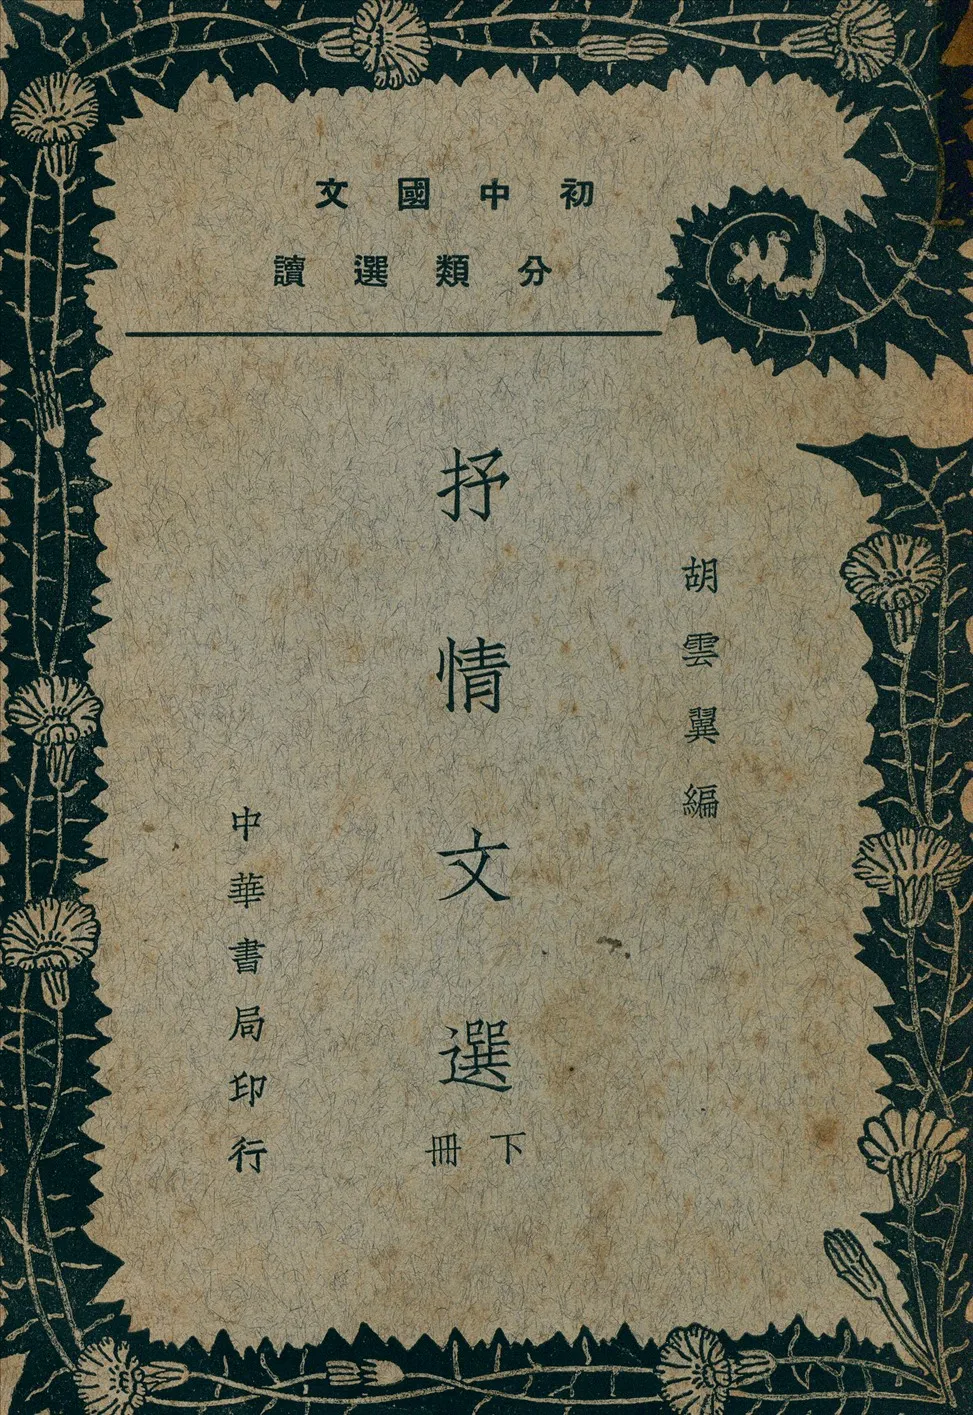 初中國文
分類選讀
胡雲翼編
抒情文選
下冊
中華書局印行